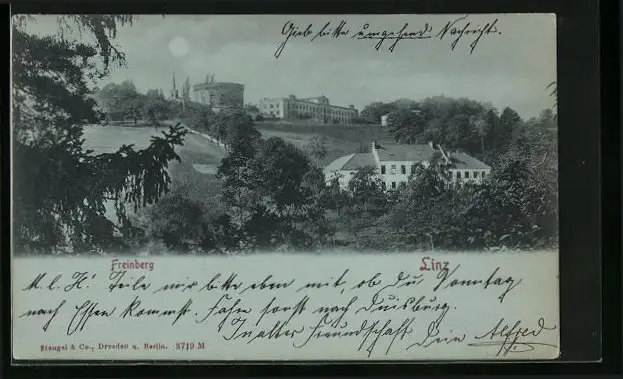 Gieb bitte umgehend Nachricht.
Freinberg
Linz
M. l. K! Teile mir bitte eben mit, ob Du Sonntag
nach Essen kommst. Fahre sonst nach Duisburg.
In alter Freundschaft Dein Alfred
Stengel & Co., Dresden u. Berlin. 8719 M